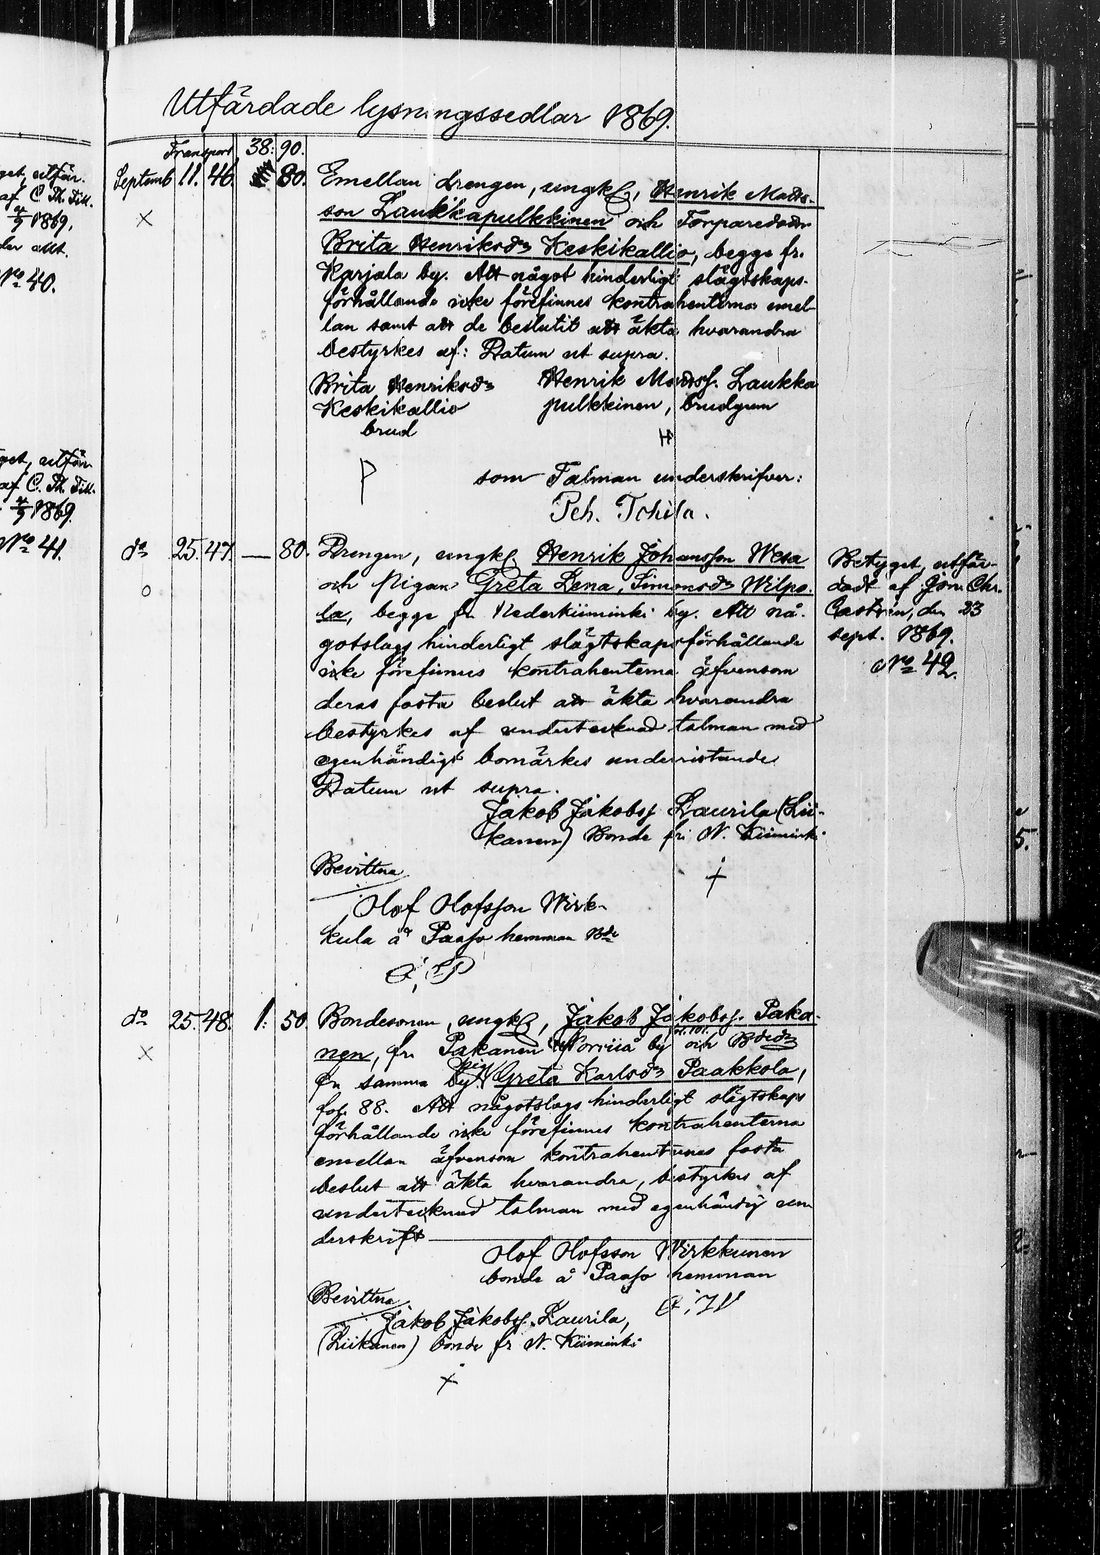 Utfärdade lysningssedlar 1869.
Transport 38: 90.
Septemb 11. 46. 80. Emellan drengen, ungk, Henrik Matts-
son Laukkapulkkinen och Torparedodr
Brita Henriksdr Keskikallio, begge fr.
Karjala by. Att något hinderligt slägtskaps-
förhållande icke förefinnes kontrahenterna emel-
lan samt att de beslutit att äkta hvarandra
bestyrkes af: Datum ut supra.
Brita Henriksdr
Keskikallio
brud
Henrik Mattss. Laukka
pulkkinen, brudgum
som Talman underskrifver:
Peh. Tohila.
do 25. 47. — 80. Drengen, ungk. Henrik Johansson Wesa
och Pigan Greta Lena, Simonsdr Wilpo-
la, begge fr Nederkiiminki by. Att nå-
gotslags hinderligt slägtskapsförhållande
icke förefinnes kontrahenterna äfvensom
deras fasta beslut att äkta hvarandra
bestyrkes af undertecknad talman med
egenhändigt bomärkes underristande
Datum ut supra.
Jakob Jakobss Laurila (Lii-
kanen) Bonde fr. N. Kiiminki
Bevittna
Olof Olofsson Wirk-
kula å Paaso hemman
Betyget, utfär-
dadt af Chr.
Castrén, den 23
sept. 1869.
No 42.
do 25. 48. 1: 50. Bondesonen, ungk, Jakob Jakobss. Paka-
nen, fr. Pakanen by och
fr samma by Greta Karlsdr Paakkola,
fol. 88. Att någotslags hinderligt slägtskaps
förhållande icke förefinnes kontrahenterna
emellan äfvensom kontrahenternes fasta
beslut att äkta hvarandra, bestyrkes af
undertecknad talman med egenhändig un
derskrift
Olof Olofsson Wirkkunen
bonde å Paaso hemman
Bevittna
Jakob Jakobss. Laurila,
(Liikanen) bonde fr N. Kiiminki
get, utfär-
af C. Th.
1869.
No 40.
get, utfär-
af C. Th.
1869.
No 41.